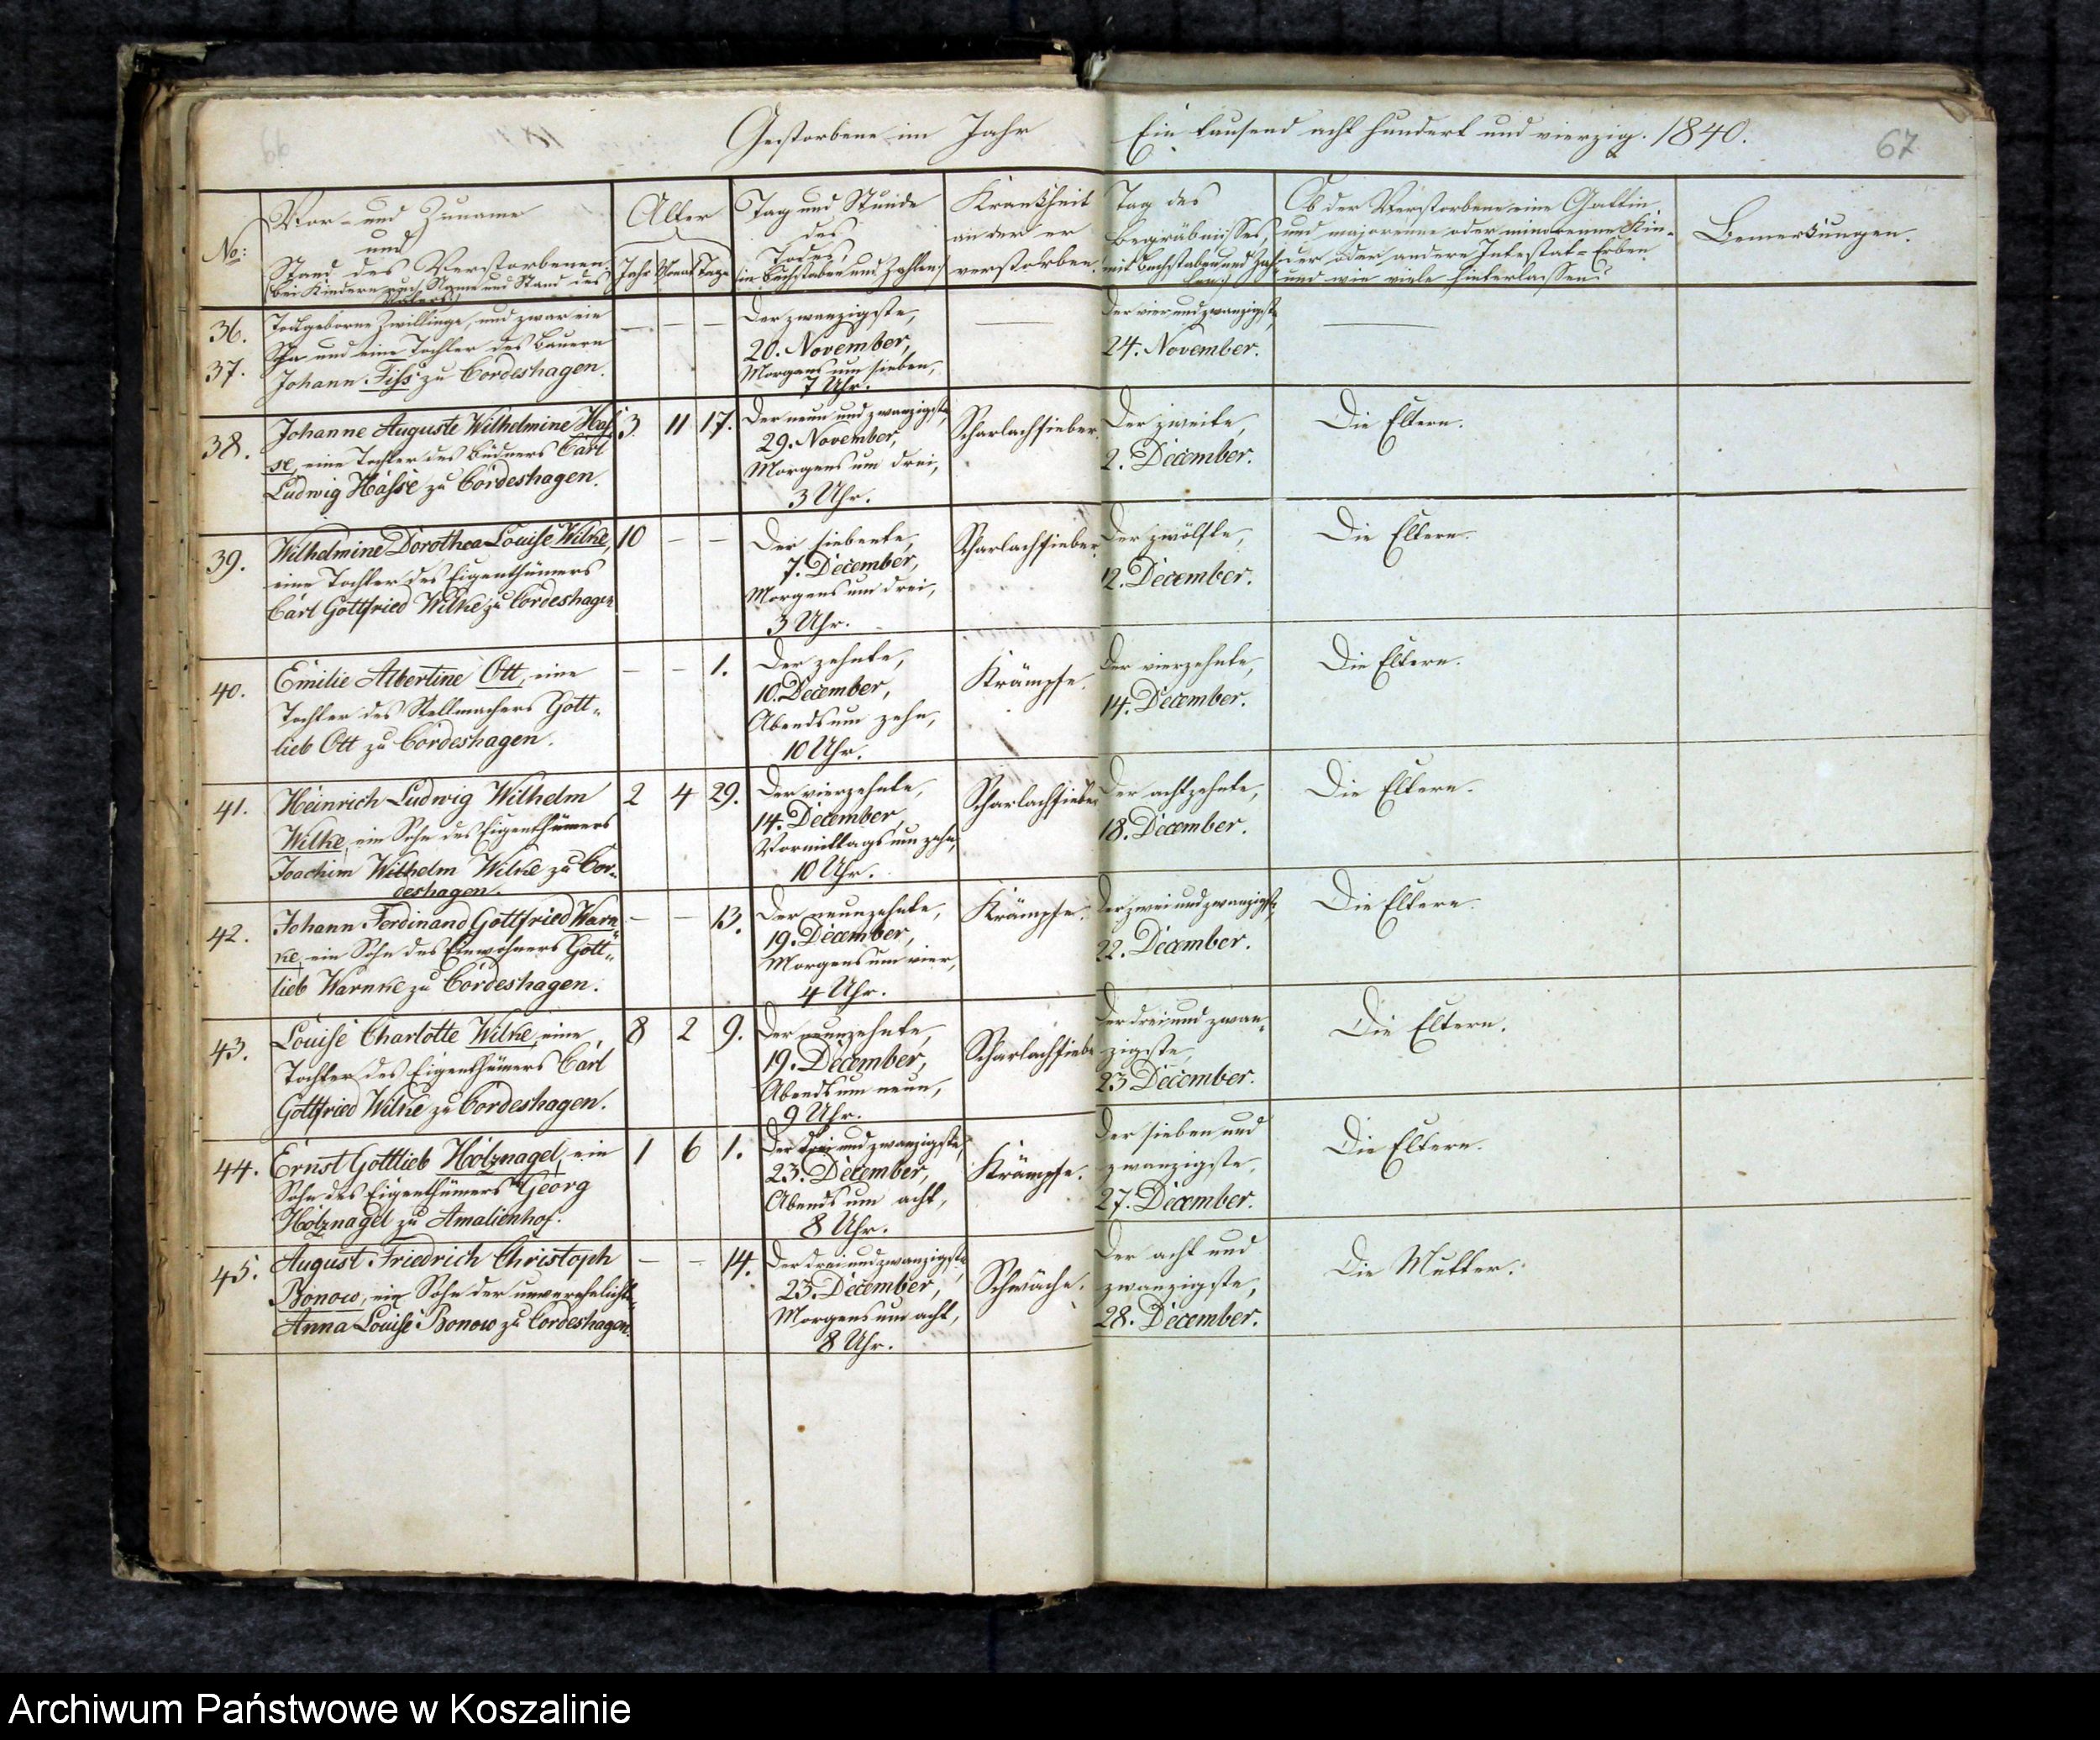 Gestorbene im Jahr
Ein tausend acht hundert und vierzig. 1840.
67
No:
Vor- und Zuname
und
Stand des Verstorbenen
(bei Kindern auch Name und Stand des
Vaters.)
Alter
Jahr Monat Tage
Tag und Stunde
des
Todes,
(in Buchstaben und Zahlen)
Krankheit
an der er
verstorben.
Tag des
Begräbnisses,
mit Buchstaben und Zah-
len.
Ob der Verstorbene eine Gattin
und majorenne oder minorenne Kin-
der oder andere Intestat-Erben
und wie viele hinterlassen?
Bemerkungen.
36.
37.
Todtgeborne Zwillinge, und zwar ein
Sohn und eine Tochter des Bauern
Johann Fiss zu Cordeshagen.
— — —
Der zwanzigste,
20. November,
Morgens um sieben,
7 Uhr.
—
Der vier und zwanzigste
24. November.
—
38.
Johanne Auguste Wilhelmine Has-
se, eine Tochter des Büdners Carl
Ludwig Hasse zu Cordeshagen.
3 11 17.
Der neun und zwanzigste,
29. November,
Morgens um drei,
3 Uhr.
Scharlachfieber.
Der zweite,
2. December.
Die Eltern.
39.
Wilhelmine Dorothea Louise Wilke,
eine Tochter des Eigenthümers
Carl Gottfried Wilke zu Cordeshagen
10 — —
Der siebente,
7. December,
Morgens um drei,
3 Uhr.
Scharlachfieber.
Der zwölfte,
12. December.
Die Eltern.
40.
Emilie Albertine Ott, eine
Tochter des Stellmachers Gott-
lieb Ott zu Cordeshagen.
— — 1.
Der zehnte,
10. December,
Abends um zehn,
10 Uhr.
Krämpfe.
Der vierzehnte,
14. December.
Die Eltern.
41.
Heinrich Ludwig Wilhelm
Wilke, ein Sohn des Eigenthümers
Joachim Wilhelm Wilke zu Cor-
deshagen.
2 4 29.
Der vierzehnte,
14. December,
Vormittags um zehn,
10 Uhr.
Scharlachfieber
Der achtzehnte,
18. December.
Die Eltern.
42.
Johann Ferdinand Gottfried Warn-
ke, ein Sohn des Einwohners Gott-
lieb Warnke zu Cordeshagen.
— — 13.
Der neunzehnte,
19. December,
Morgens um vier,
4 Uhr.
Krämpfe.
Der zwei und zwanzigste,
22. December.
Die Eltern.
43.
Louise Charlotte Wilke, eine
Tochter des Eigenthümers Carl
Gottfried Wilke zu Cordeshagen.
8 2 9.
Der neunzehnte,
19. December,
Abends um neun,
9 Uhr.
Scharlachfieb
Der drei und zwan-
zigste,
23 December.
Die Eltern.
44.
Ernst Gottlieb Holznagel, ein
Sohn des Eigenthümers Georg
Holznagel zu Amalienhof.
1 6 1.
Der drei und zwanzigste,
23. December,
Abends um acht,
8 Uhr.
Krämpfe.
Der sieben und
zwanzigste,
27. December.
Die Eltern.
45.
August Friedrich Christoph
Bonow, ein Sohn der unverehelicht-
Anna Louise Bonow zu Cordeshagen.
— — 14.
Der drei und zwanzigste,
23. December,
Morgens um acht,
8 Uhr.
Schwäche.
Der acht und
zwanzigste,
28. December.
Die Mutter.
Archiwum Państwowe w Koszalinie